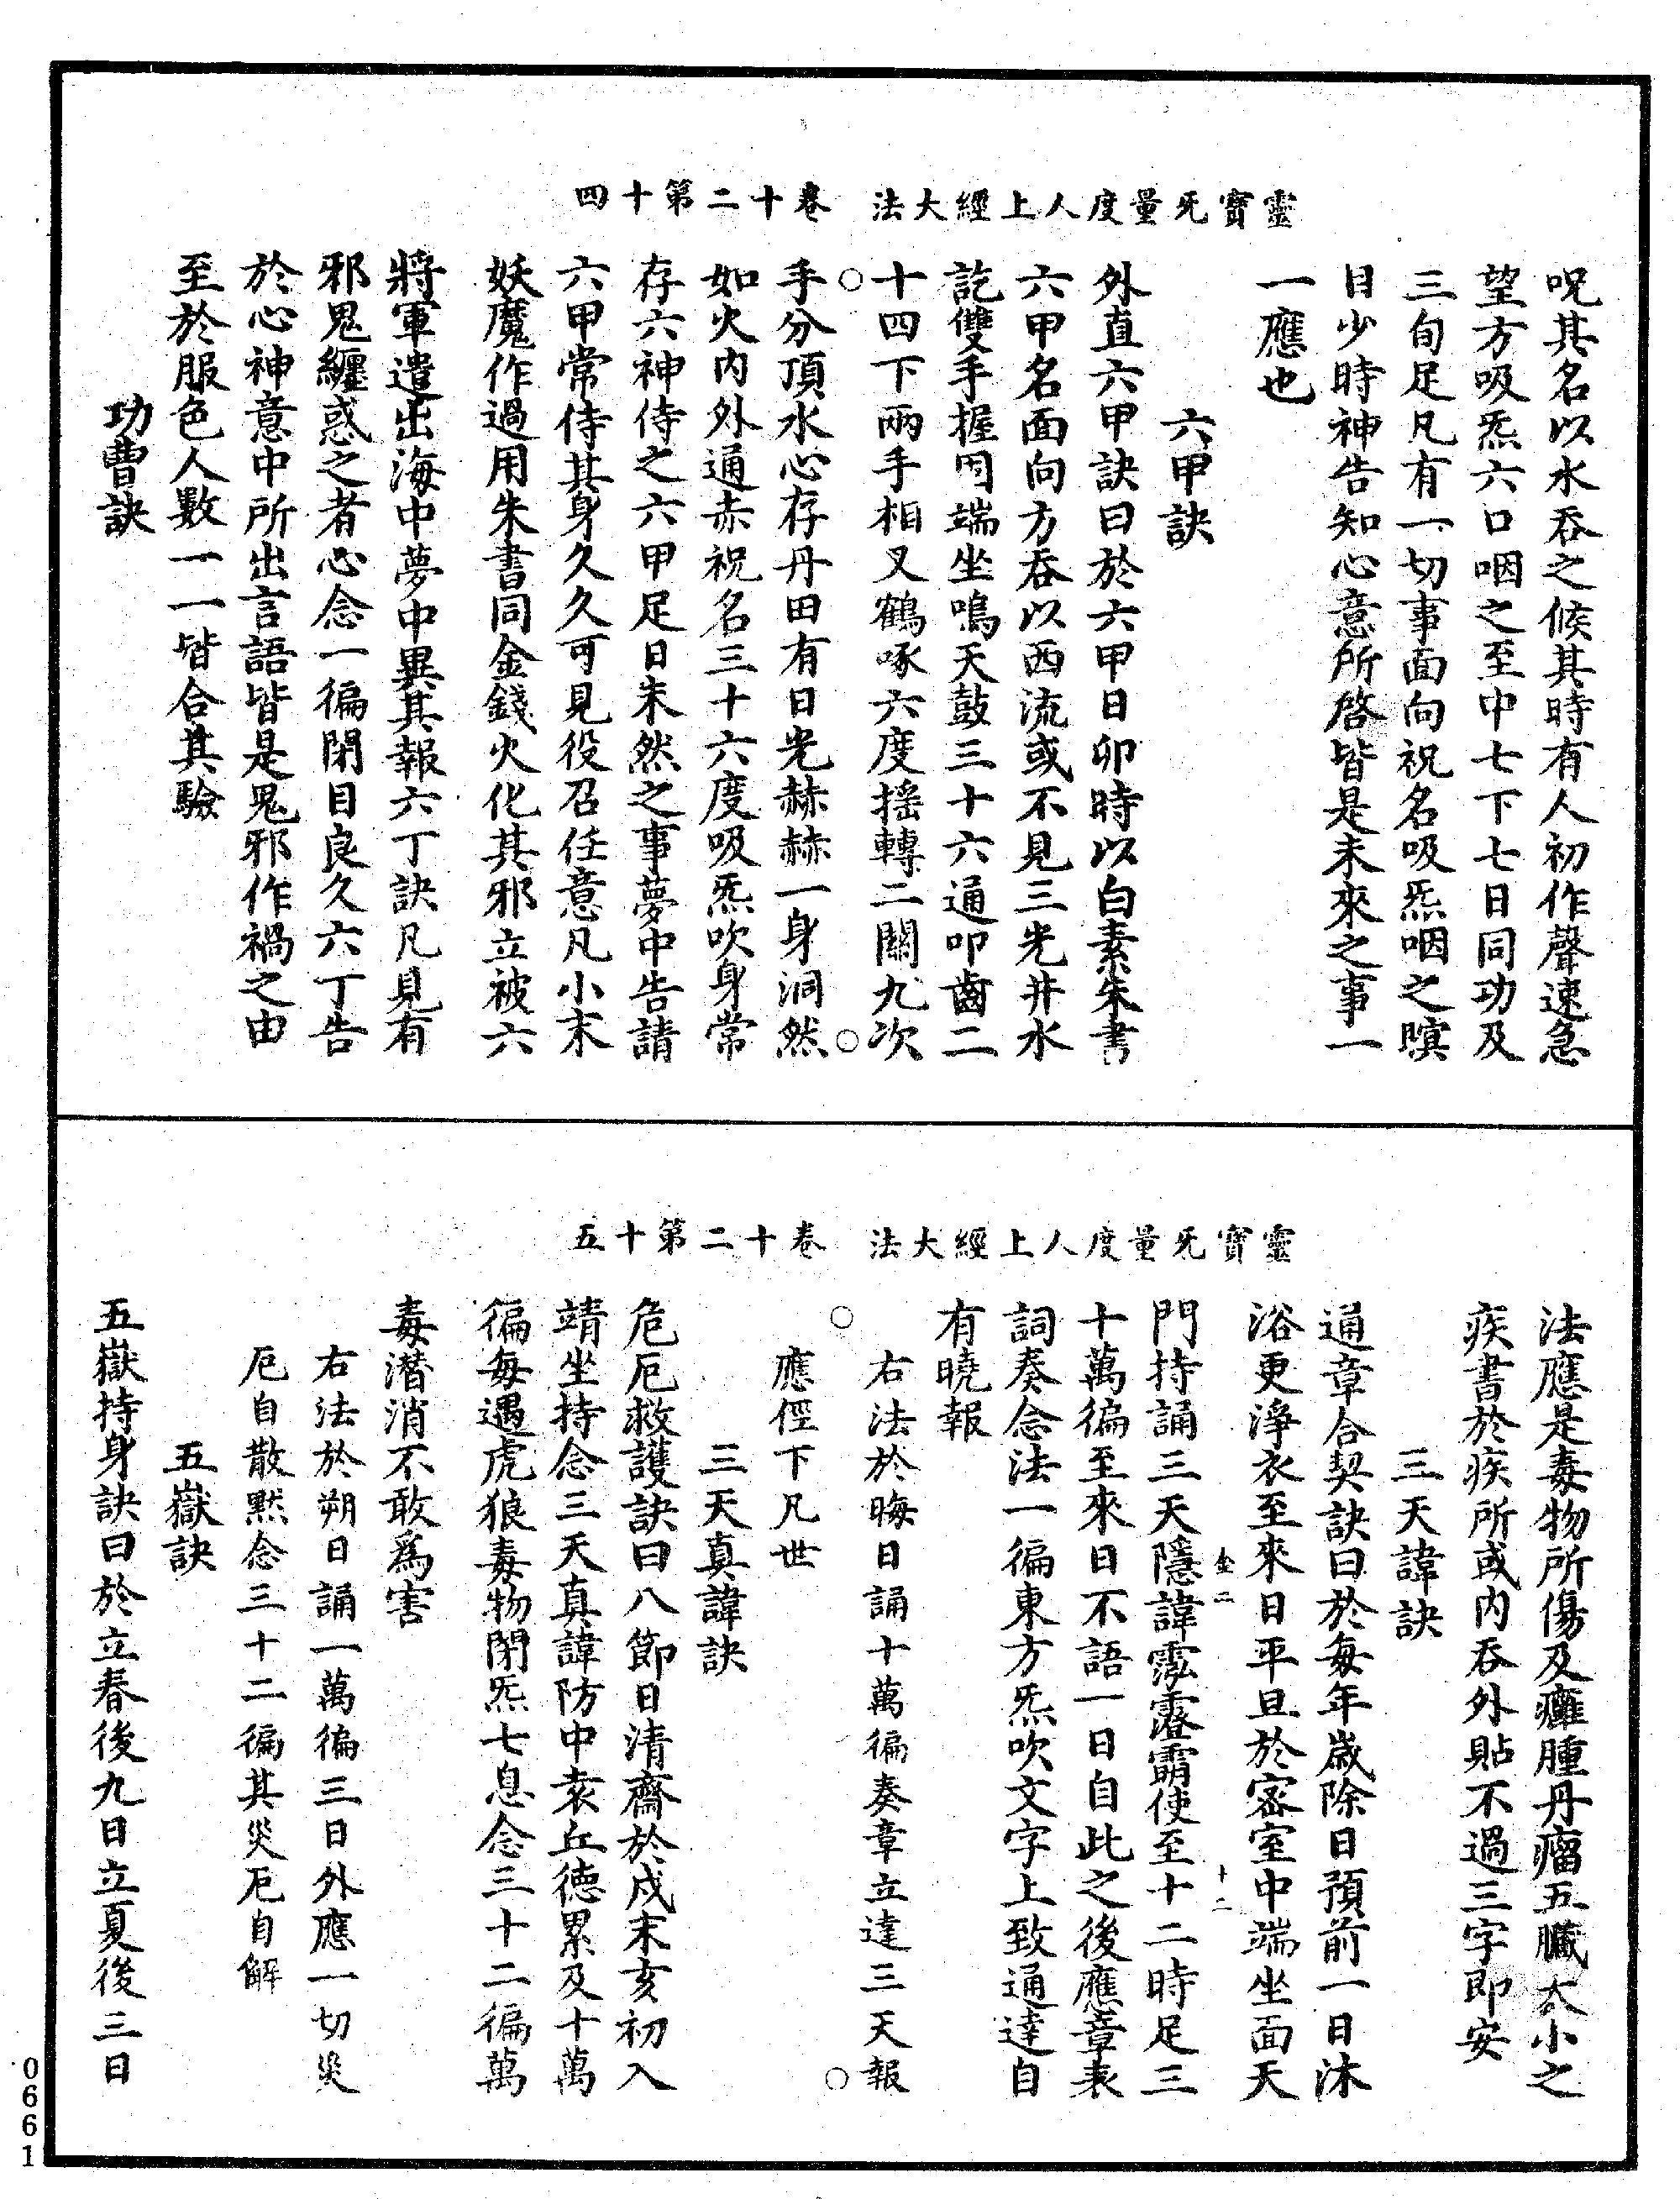 靈寶旡量度人上經大法　卷十二第十四
呪其名以水吞之候其時有人初作聲速急
望方吸炁六口咽之至中七下七日同功及
三旬足凡有一切事面向祝名吸炁咽之瞑
目少時神告知心意所啓皆是未來之事一
一應也
六甲訣
外直六甲訣曰於六甲日卯時以白素朱書
六甲名面向方吞以西流或不見三光井水
訖雙手握固端坐鳴天鼓三十六通叩齒二
十四下兩手相叉鶴啄六度搖轉二關九次
手分頂水心存丹田有日光赫赫一身洞然
如火內外通赤祝名三十六度吸炁吹身常
存六神侍之六甲足日未然之事夢中告請
六甲常侍其身久久可見役召任意凡小末
妖魔作過用朱書同金錢火化其邪立被六
將軍遣出海中夢中異其報六丁訣凡見有
邪鬼纏惑之者心念一徧閉目良久六丁告
於心神意中所出言語皆是鬼邪作禍之由
至於服色人數一一皆合其驗
功曹訣
靈寶旡量度人上經大法　卷十二第十五
法應是毒物所傷及癰腫丹瘤五臟大小之
疾書於疾所或內吞外貼不過三字即安
三天諱訣
通章合契訣曰於每年歲除日預前一日沐
浴更淨衣至來日平旦於密室中端坐面天
門持誦三天隱諱使至十二時足三
金二　十二
十萬徧至來日不語一日自此之後應章表
詞奏念法一徧東方炁吹文字上致通達自
有曉報
右法於晦日誦十萬徧奏章立達三天報
應徑下凡世
三天真諱訣
危厄救護訣曰八節日清齋於戌末亥初入
靖坐持念三天真諱防中袁丘德累及十萬
徧每遇虎狼毒物閉炁七息念三十二徧萬
毒潛消不敢為害
右法於朔日誦一萬徧三日外應一切災
厄自散默念三十二徧其災厄自解
五嶽訣
五嶽持身訣曰於立春後九日立夏後三日
0661